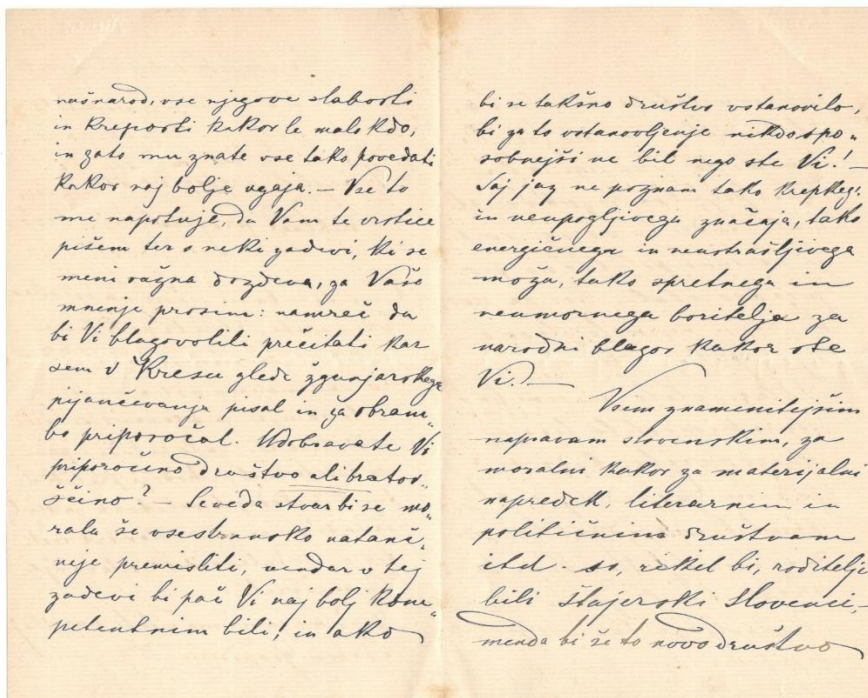 našnarod, vse njegove slabosti
in kreposti kakor le malo kdo,
in zato mu znate vse tako povedati
kakor naj bolje ugaja. — Vse to
me napotuje, da Vam te vrstice
pišem ter o neki zadevi, ki se
meni važna dozdeva, za Vaše
mnenje prosim: namreč da
bi Vi blagovolili prečitati kar
sem v Kresu glede žganjarskega
pijančevanja pisal in za obram„
bo priporočal. Udobravate Vi
priporočeno društvo ali bratov„
ščino? — Seveda stvar bi se mo„
rala še vsestransko natanč„
neje premisliti, vendar v tej
zadevi bi pač Vi naj bolj kom„
petentnim bili; in ako
bi se takšno društvo vstanovilo,
bi za to vstanovljenje nikdo spo„
sobnejši ne bil nego ste Vi! —
Saj jaz ne poznam tako krepkega
in neupogljivega značaja, tako
energičnega in neustrašljivega
moža, tako spretnega in
neumornega boritelja za
narodni blagor kakor ste
Vi. —
Vsem znamenitejšim
napravam slovenskim, za
moralni kakor za materijalni
napredek, literarnim in
političnim društvam
itd. so, rekel bi, roditelji
bili štajerski Slovenci,
menda bi še to novo društvo